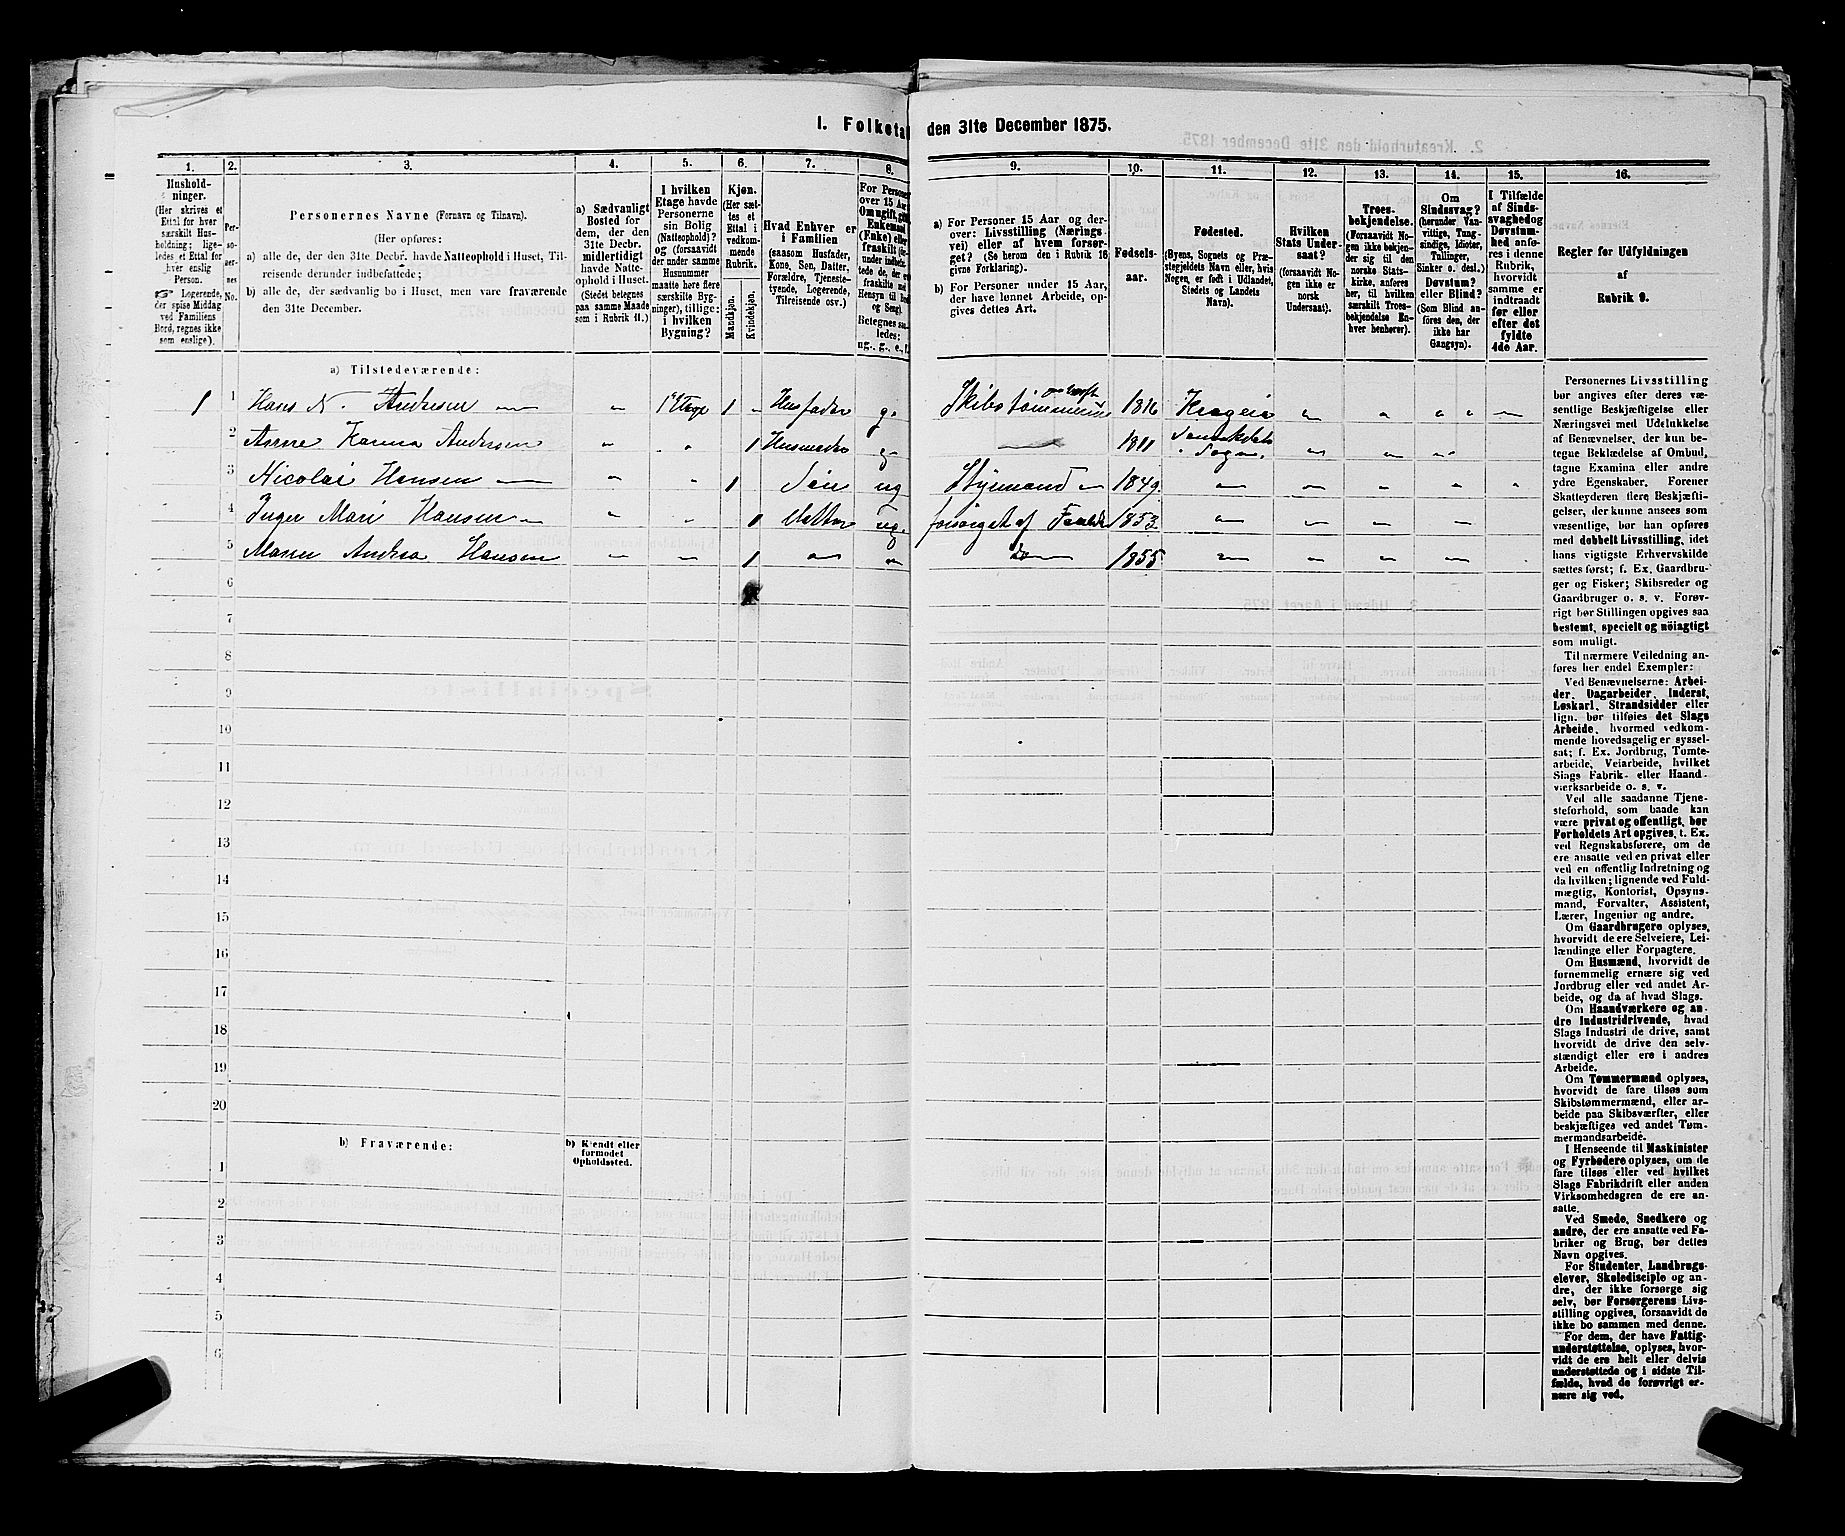 I. Folketal
den 31te December 1875.
1. 2. 3. 4. 5. 6. 7. 8. 9. 10. 11. 12. 13. 14. 15. 16.
Hushold-
ninger.
(Her skrives et
Ettal for hver
særskilt Hus-
holdning; lige-
ledes et Ettal for
hver enslig
Person.
☞ Logerende,
der spise Middag
ved Familiens
Bord, regnes ikke
som enslige).
Per-
so-
ner-
nes
No.
Personernes Navne (Fornavn og Tilnavn).
(Her opføres:
a) alle de, der den 31te Decbr. havde Natteophold i Huset, Til-
reisende derunder indbefattede;
b) alle de, der sædvanlig bo i Huset, men vare fraværende
den 31te December.
a) Sædvanligt
Bosted for
dem, der den
31te Decbr.
midlertidigt
havde Natte-
ophold i Huset.
(Stedet betegnes
paa samme Maade
som i Rubrik 11.)
I hvilken
Etage havde
Personerne
sin Bolig
(Natteophold)?
og (forsaavidt
der under samme
Husnummer
maatte høre flere
særskilte Byg-
ninger), tillige:
i hvilken
Bygning?
Kjøn.
(Her sæt-
tes et
Ettal i
vedkom-
mende
Rubrik.
Mandkjøn.
Kvindekjøn.
Hvad Enhver er
i Familien
(saasom Husfader,
Kone, Søn, Datter,
Forældre, Tjeneste-
tyende, Logerende,
Tilreisende osv.)
For Personer
over 15 Aar
Om ugift, gift
Enkemand
(Enke) eller
fraskilt
Betegnes saa-
ledes:
ug., g., e., f.
a) For Personer 15 Aar og der-
over: Livsstilling (Nærings-
vei) eller af hvem forsør-
get? (Se herom den i Rubrik 16
givne Forklaring).
b) For Personer under 15 Aar,
der have lønnet Arbeide, op-
gives dettes Art.
Fødsels-
aar.
Fødested.
(Byens, Sognets og Præ-
stegjeldets Navn eller, hvis
Nogen, er født i Udlandet,
Stedets og Landets
Navn).
Hvilken
Stats Under-
saat?
(forsaavidt No-
gen ikke er
norsk
Undersaat).
Troes-
bekjendelse.
(Forsaavidt No-
gen ikke bekjen-
der sig til den
norske Stats-
kirke, anføres
her, til hvilken
særskilt Troes-
bekjendelse En-
hver henhører).
Om
Sindssvag?
(herunder Van-
vittige, Tung-
sindige, Idioter,
Tullinger,
Sinker o. desl.)
Døvstum?
eller Blind?
(Som Blind an-
føres den, der
ikke har
Gangsyn).
I Tilfælde
af Sinds-
svaghed og
Døvstum-
hed anfø-
res i denne
Rubrik,
hvorvidt
samme er
indtraadt
før eller
efter det
fyldte
4de Aar.
Regler før Udfyldningen
af
Rubrik 9.
a) Tilstedeværende:
1 1 Hans N. Andersen 1 Etage 1 Husfader g. Skibstømmermand 1816 Kragerø
2 Anne Karina Andersen 1 Husmoder g 1811 Sannikedals Sogn
3 Nicolai Hansen 1 Søn ug Styrmand 1849
4 Inger Mari Hansen 1 Datter ug. forsørget af Forældr 1853
5 Maren Andrea Hansen 1 do 1855
6
7
8
9
10
11
12
13
14
15
16
17
18
19
20
b) Fraværende:
b) Kjendt eller
formodet
Opholdssted.
1
2
3
4
5
6
Personernes Livsstilling
bør angives efter deres væ-
sentlige Beskjæftigelse eller
Næringsvei med Udelukkelse
af Benævnelser, der kun be-
tegne Beklædelse af Ombud,
tagne Examina eller andre
ydre Egenskaber. Forener
Skatteyderen flere Beskjæfti-
gelser, der kunne ansees som
væsentlige, bør han opføres
med dobbelt Livsstilling, idet
hans vigtigste Erhvervskilde
sættes først; f. Ex. Gaardbru-
ger og Fisker; Skibsreder og
Gaardbruger o. s. v. Forøv-
rigt bør Stillingen opgives saa
bestemt, specielt og nöiagtigt
som muligt.
Til nærmere Veiledning an-
føres her endel Exempler:
Ved Benævnelserne: Arbei-
der, Dagarbeider, Inderst,
Løskarl, Strandsidder eller
lign. bør tilføies det Slags
Arbeide, hvormed vedkom-
mende hovedsagelig er syssel-
sat; f. Ex. Jordbrug, Tomte-
arbeide, Veiarbeide, hvilket
Slags Fabrik- eller Haand-
værksarbeide o. s. v.
Ved alle saadanne Tjene-
steforhold, som baade kan
være privat og offentligt, bør
Forholdets Art opgives, t. Ex.
ved Regnskabsførere, om de
ere ansatte ved en privat eller
ved en offentlig Indretning og
da hvilken; lignende ved Fuld-
mægtig, Kontorist, Opsyns-
mand, Forvalter, Assistent,
Lærer, Ingeniør og andre.
Om Gaardbrugere oplyses,
hvorvidt de ere Selveiere, Lei-
lændinge eller Forpagtere.
Om Husmænd, hvorvidt de
fornemmelig ernære sig ved
Jordbrug eller ved andet Ar-
beide, og da af hvad Slags.
Om Haandværkere og an-
dre Industridrivende, hvad
Slags Industri de drive, samt
hvorvidt de drive den selv-
stændigt eller ere i andres
Arbeide.
Om Tømmermænd oplyses,
hvorvidt de fare tilsøs som
Skibstømmermænd, eller ar-
beide paa Skibsværfter, eller
beskjæftiges ved andet Tøm-
mermandsarbeide.
I Henseende til Maskinister
og Fyrbødere oplyses, om de
fare tilsøs eller ved hvilket
Slags Fabrikdrift eller anden
Virksomhedsgren de ere an-
satte.
Ved Smede, Snedkere og
andre, der ere ansatte ved Fa-
briker og Brug, bør dettes
Navn opgives.
For Studenter, Landbrugs-
elever, Skoledisciple og an-
dre, der ikke forsørge sig
selv, bør Forsørgerens Livs-
stilling opgives, forsaavidt de
ikke bo sammen med denne.
For dem, der have Fattig-
understøttelse, oplyses, hvor-
vidt de ere helt eller delvis
understøttede og i sidste Til-
fælde, hvad de forøvrigt er-
nære sig ved.